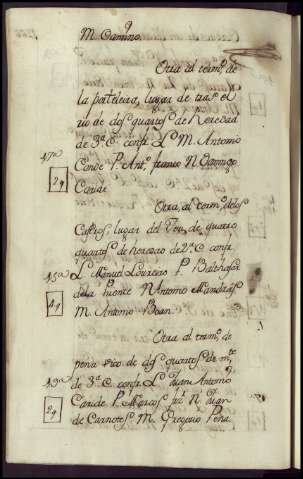 M. Camino.
Otra al termo. de
la portelera, lugar de tras el
rio de dos quartos de Heredad
de 3ª C. confr. L. M. Antonio
Conde P. Anto. franco N. Domingo
Conde
Otra, al termo. delos
Castros, lugar del Tou, de quatro
quartos de heredad de 2ª C. confr.
L. Manuel Loureiro P. Balthasar
dela Puente N. Antonio
M. Antonio Boan
4q
Otra al termo. de
pena rico de dos quartos de mte.
de 3ª C. confr. L. Juan Antonio
Conde P. Marcos N. Juan
de M. Gregorio Pena
2q